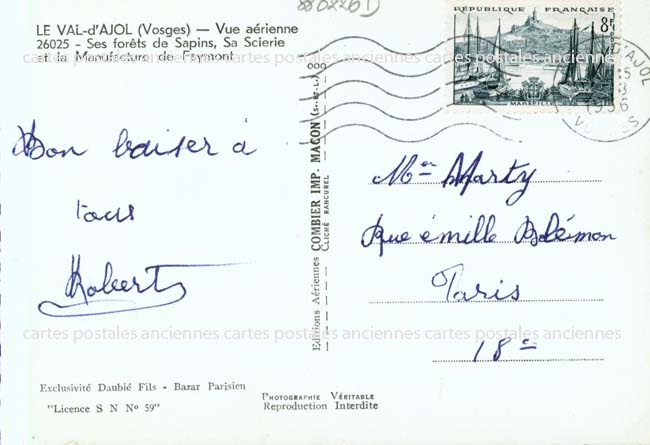 LE VAL-d'AJOL (Vosges) — Vue aérienne
26025 - Ses forêts de Sapins, Sa Scierie
et la Manufacture de Faymont
cartes postales anciennes cartes postales anciennes cartes postales anciennes
RÉPUBLIQUE FRANÇAISE
8F
MARSEILLE
D'AJOL
1956
VOSGES
Bon baiser à
tous
Robert
Editions Aériennes COMBIER IMP. MACON (S.-et-L.)
CLICHÉ RANCUREL
Mer Marty
Rue émille Blémon
Paris
18e
cartes postales anciennes cartes postales anciennes cartes postales anciennes
Exclusivité Daubié Fils - Bazar Parisien
"Licence S N No 59"
PHOTOGRAPHIE VÉRITABLE
Reproduction Interdite